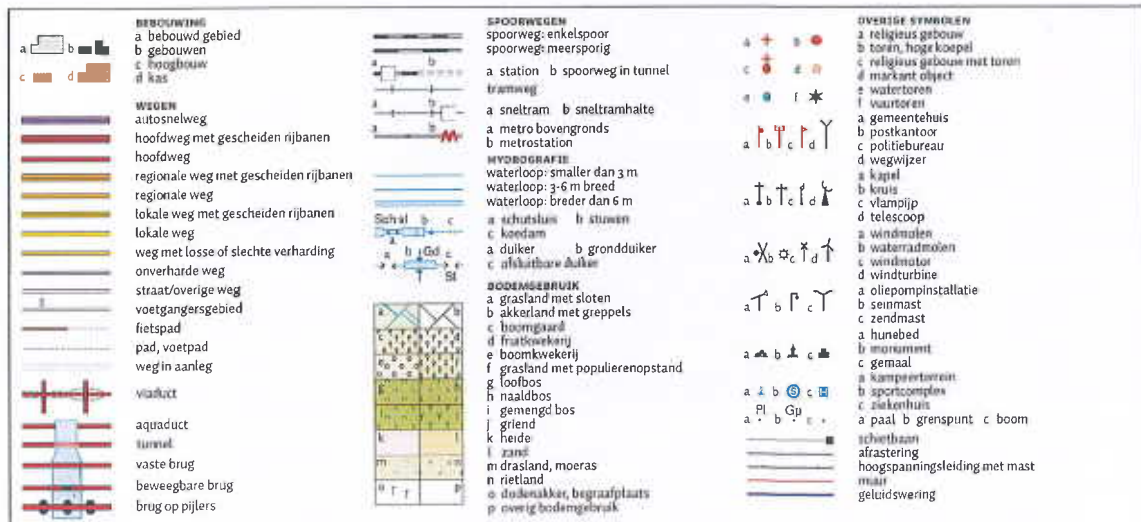 BEBOUWING
a bebouwd gebied
b gebouwen
c hoogbouw
d kas
a b
c d
WEGEN
autosnelweg
hoofdweg met gescheiden rijbanen
hoofdweg
regionale weg met gescheiden rijbanen
regionale weg
lokale weg met gescheiden rijbanen
lokale weg
weg met losse of slechte verharding
onverharde weg
straat/overige weg
voetgangersgebied
fietspad
pad, voetpad
weg in aanleg
viaduct
aquaduct
tunnel
vaste brug
beweegbare brug
brug op pijlers
SPOORWEGEN
spoorweg: enkelspoor
spoorweg: meersporig
a b
a station b spoorweg in tunnel
tramweg
a b
a sneltram b sneltramhalte
a b
a metro bovengronds
b metrostation
HYDROGRAFIE
waterloop: smaller dan 3 m
waterloop: 3-6 m breed
waterloop: breder dan 6 m
Schsl b c
a
a schutsluis b stuwen
c koedam
a b Gd c
St
a duiker b grondduiker
c afsluitbare duiker
BODEMGEBRUIK
a grasland met sloten
b akkerland met greppels
c boomgaard
d fruitkwekerij
e boomkwekerij
f grasland met populierenopstand
g loofbos
h naaldbos
i gemengd bos
j griend
k heide
l zand
m drasland, moeras
n rietland
o dodenakker, begraafplaats
p overig bodemgebruik
a b
k l
m n
o p
OVERIGE SYMBOLEN
a b
c d
e f
a religieus gebouw
b toren, hoge koepel
c religieus gebouw met toren
d markant object
e watertoren
f vuurtoren
a b c d
a gemeentehuis
b postkantoor
c politiebureau
d wegwijzer
a b c d
a kapel
b kruis
c vlampijp
d telescoop
a b c d
a windmolen
b waterradmolen
c windmotor
d windturbine
a b c
a oliepompinstallatie
b seinmast
c zendmast
a b c
a hunebed
b monument
c gemaal
a b S c H
a kampeerterrein
b sportcomplex
c ziekenhuis
Pl Gp
a b c
a paal b grenspunt c boom
schietbaan
afrastering
hoogspanningsleiding met mast
muur
geluidswering